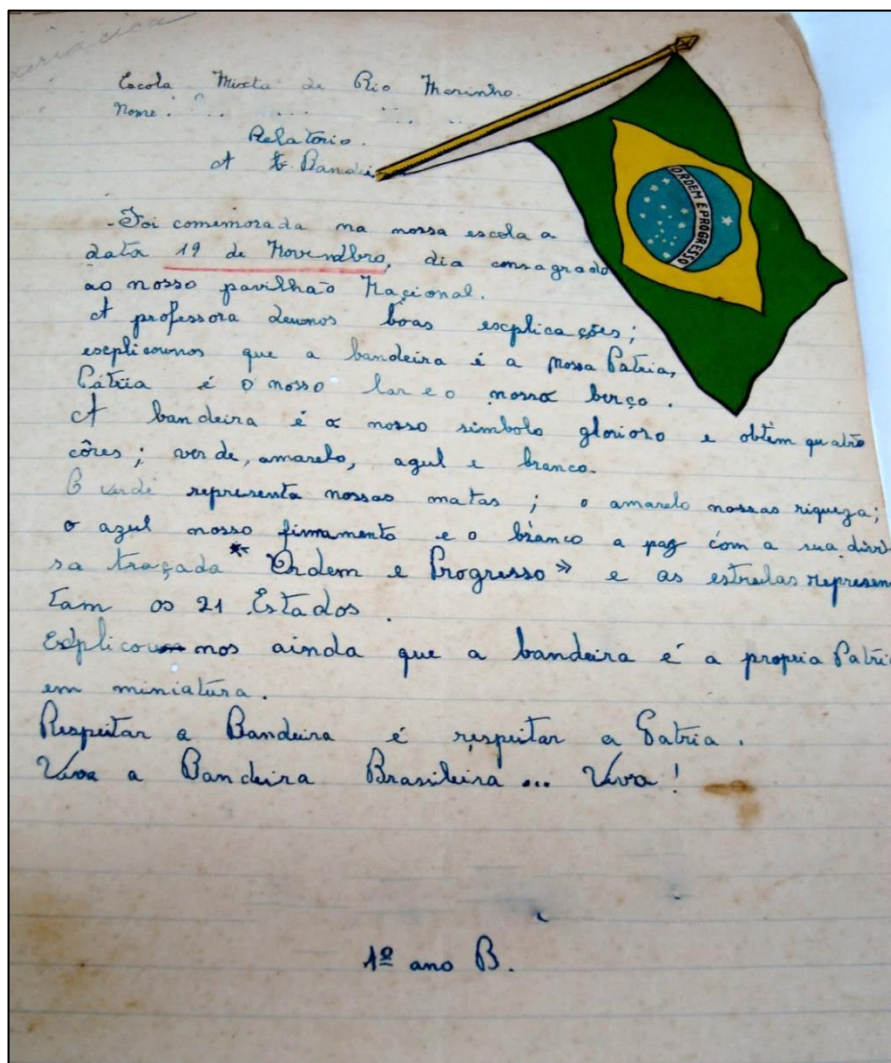 Cariacica
Escola Mixta de Rio Marinho.
Nome:
Relatorio.
A Bandei
ORDEM E PROGRESSO
-Foi comemorada na nossa escola a
data 19 de Novembro, dia consagrado
ao nosso pavilhão Nacional.
A professora deunos bôas escplicações;
escplicounos que a bandeira é a nossa Patria,
Pátria é o nosso lar e o nosso berço.
A bandeira é o nosso simbolo glorioso e obtêm quatro
côres; verde, amarelo, agul e branco.
O verde representa nossas matas; o amarelo nossas riqueza;
o azul nosso firmamento e o branco a pag com a sua divi
sa traçada "Ordem e Progresso" e as estrelas represen
tam os 21 Estados.
Explicou nos ainda que a bandeira é a propria Patria
em miniatura.
Respeitar a Bandeira é respeitar a Patria.
Viva a Bandeira Brasileira... Viva!
1º ano B.